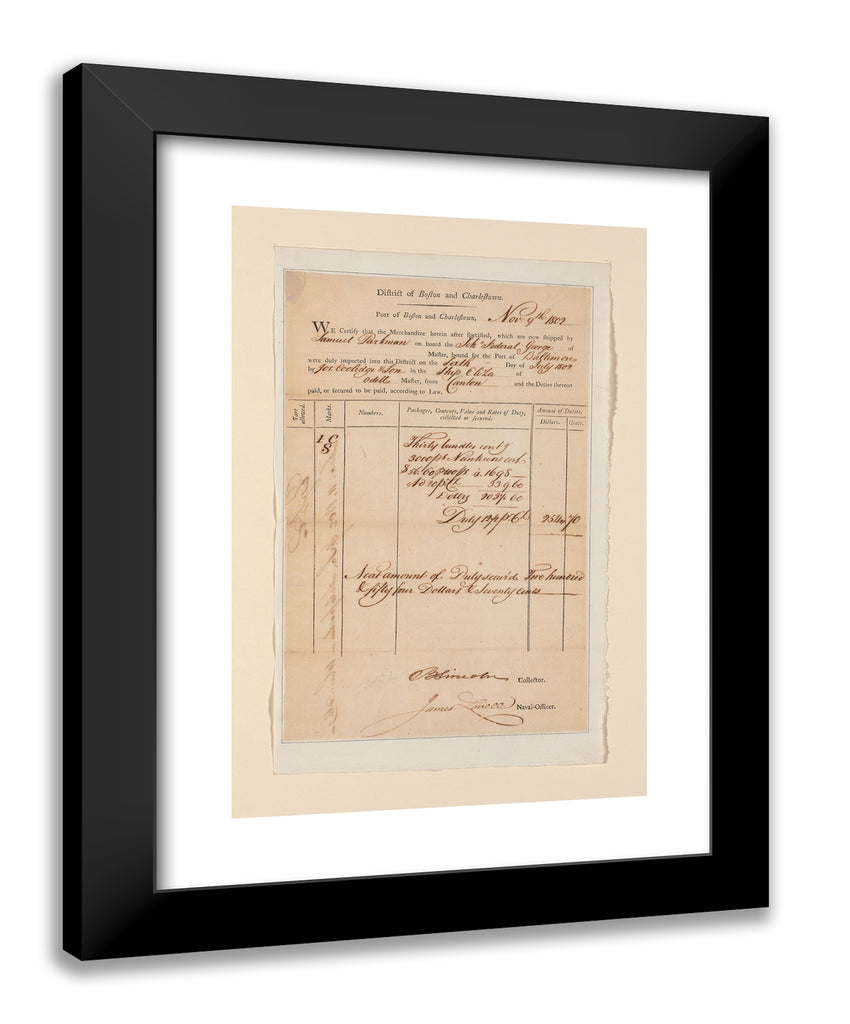 District of Boston and Charlestown.
Port of Boston and Charlestown, Nov 9th 1802
WE Certify that the Merchandize herein after specified, which are now shipped by
Samuel Parkman on board the Schr Federal George of
Master, bound for the Port of Baltimore
were duly imported into this District on the Sixth Day of July 1802
by Jos. Coolidge & Son in the Ship Eliza of
Odell Master, from Canton and the Duties thereon
paid, or secured to be paid, according to Law.
Tare allowed.
Marks.
Numbers.
Packages, Contents, Value and Rates of Duty, collected or secured.
Amount of Duties.
Dollars. Cents.
I C
8
Thirty bundles
3000 ps Nankeens
1698
Ad 20 pCt 339.60
Dollars 2037.60
Duty 12½ pCt 254 70
Neat amount of Duty secur'd Two hundred
& fifty four Dollars & Seventy Cents
B Lincoln Collector.
James Lovell Naval-Officer.